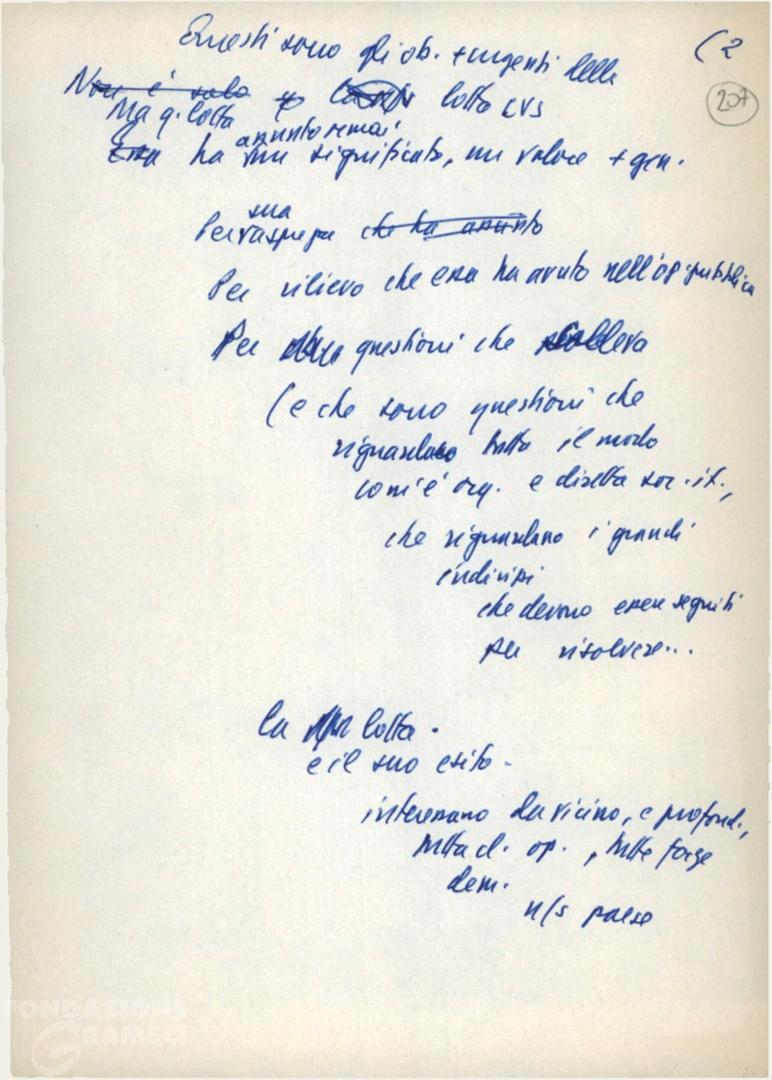 Questi sono gli ob. + urgenti della
(2
207
Non è solo lotta LVS
Ma q. lotta assunto ormai
Essa ha un significato, un valore + gen.
sua
Per asprezza che ha assunto
Per rilievo che essa ha avuto nell'op. pubblica
Per questioni che solleva
(e che sono questioni che
riguardano tutto il modo
com'è org. e diretta soc. it.,
che riguardano i grandi
indirizzi
che devono essere seguiti
per risolvere...
La lotta.
e il suo esito -
interessano da vicino, e profond.,
tutta cl. op., tutte forze
dem.
n/s paese
FONDAZIONE
GRAMSCI